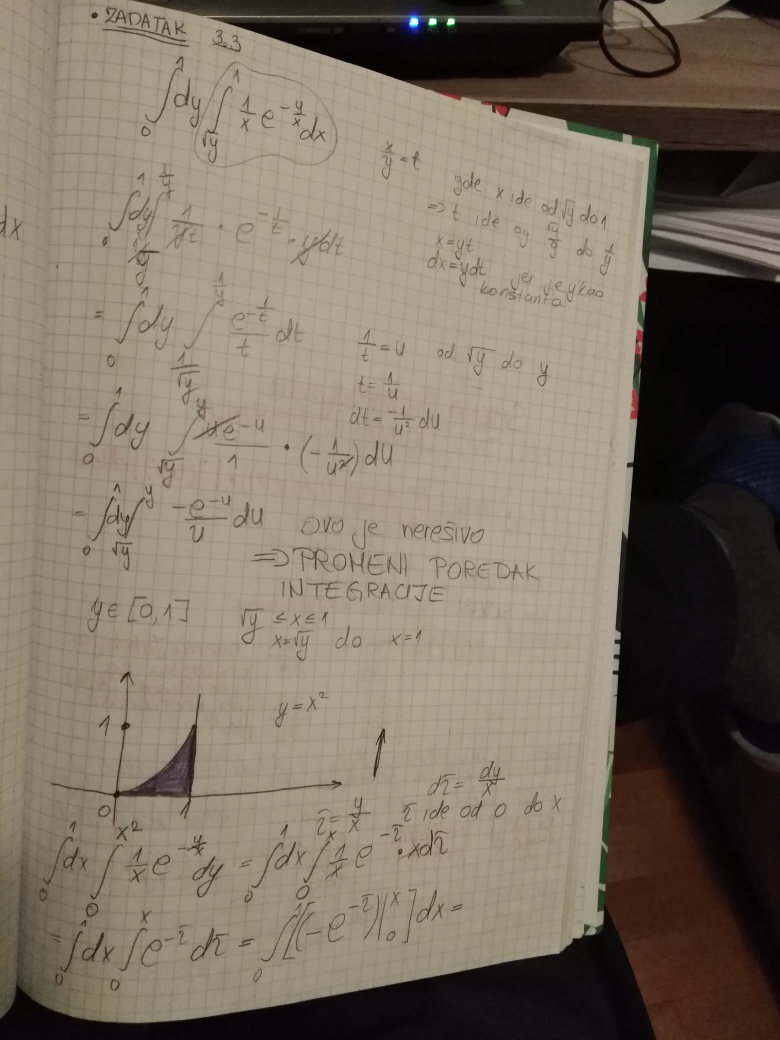 • ZADATAK 3.3
∫₀¹ dy ∫_{√y}^1 1/x e^{-y/x} dx
x/y = t gde x ide od √y do 1
⇒ t ide od √y/y do 1/y
x = yt
dx = y dt jer je y kao
konstanta
∫₀¹ dy ∫_{1/√y}^{1/y} 1/(yt) · e^{-1/t} · y dt
= ∫₀¹ dy ∫_{1/√y}^{1/y} e^{-1/t}/t dt
1/t = u od √y do y
t = 1/u
dt = -1/u² du
= ∫₀¹ dy ∫_{√y}^{y} ue^{-u}/1 · (-1/u²) du
= ∫₀¹ dy ∫_{√y}^{y} -e^{-u}/u du
ovo je nerešivo
⇒ PROMENI POREDAK
INTEGRACIJE
y ∈ [0,1] √y ≤ x ≤ 1
x=√y do x=1
1 y = x²
0 1
τ = y/x
dτ = dy/x
τ ide od 0 do x
∫₀¹ dx ∫₀^{x²} 1/x e^{-y/x} dy = ∫₀¹ dx ∫₀^x 1/x e^{-τ} · x dτ
= ∫₀¹ dx ∫₀^x e^{-τ} dτ = ∫₀¹ [(-e^{-τ})|₀^x] dx =
dx